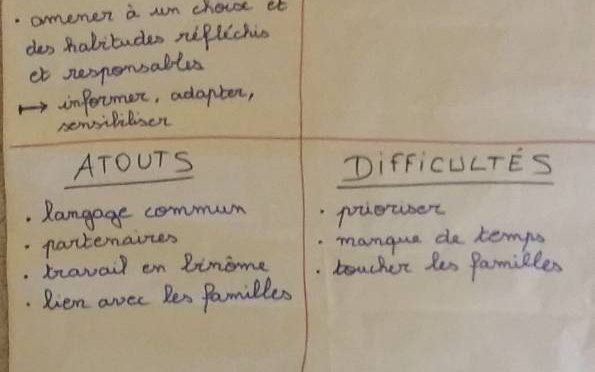 · amener à un choix et
des habitudes réfléchis
et responsables
↦ informer, adapter,
sensibiliser
ATOUTS
· langage commun
· partenaires
· travail en binôme
· lien avec les familles
DIFFICULTÉS
· prioriser
· manque de temps
· toucher les familles